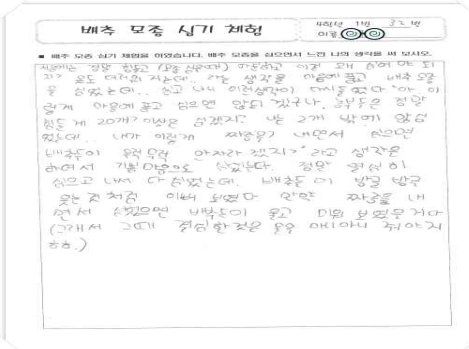 배추 모종 심기 체험
4학년 1반 32번
이름
■ 배추 모종 심기 체험을 하였습니다. 배추 모종을 심으면서 느낀 나의 생각을 써 보시오.
처음에는 정말 힘들고 이걸 왜 심어야 되
지? 옷도 더러워 지는데.. 라는 생각을 마음에 품고 배추 모종
을 심었는데.. 심고 나니 이런생각이 다시들었다 "아 이
렇게 마음에 품고 심으면 안되겠구나, 농부들은 정말
힘들게 20개? 이상은 심겠지? 나는 2개 밖에 안심
었는데.. 내가 이렇게 짜증을? 내면서 심으면
배추들이 무럭무럭 안자라겠지?" 라고 생각을
하면서 기쁜 마음으로 심었는다. 정말 열심히
심으고 나서 다 심었는데. 배추들이 방글 방글
웃는 것 처럼 이뻐 보였다 만약 짜증을 내
면서 심었으면 배추들이 울고 미워 보였을 거다
(그래서 그때 결심한것은 우유 마시아니 줘야지
ㅎㅎ.)